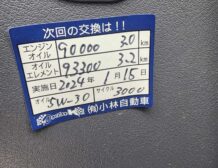 次回の交換は!!
エンジンオイル 90000 km
オイルエレメント 93300 km
実施日 2024年 1月 15日
オイル 5W-30 サイクル 3000
(有)小林自動車